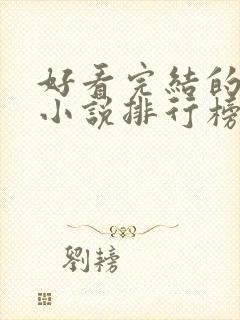 好看完結的
小説排行榜
劉榜